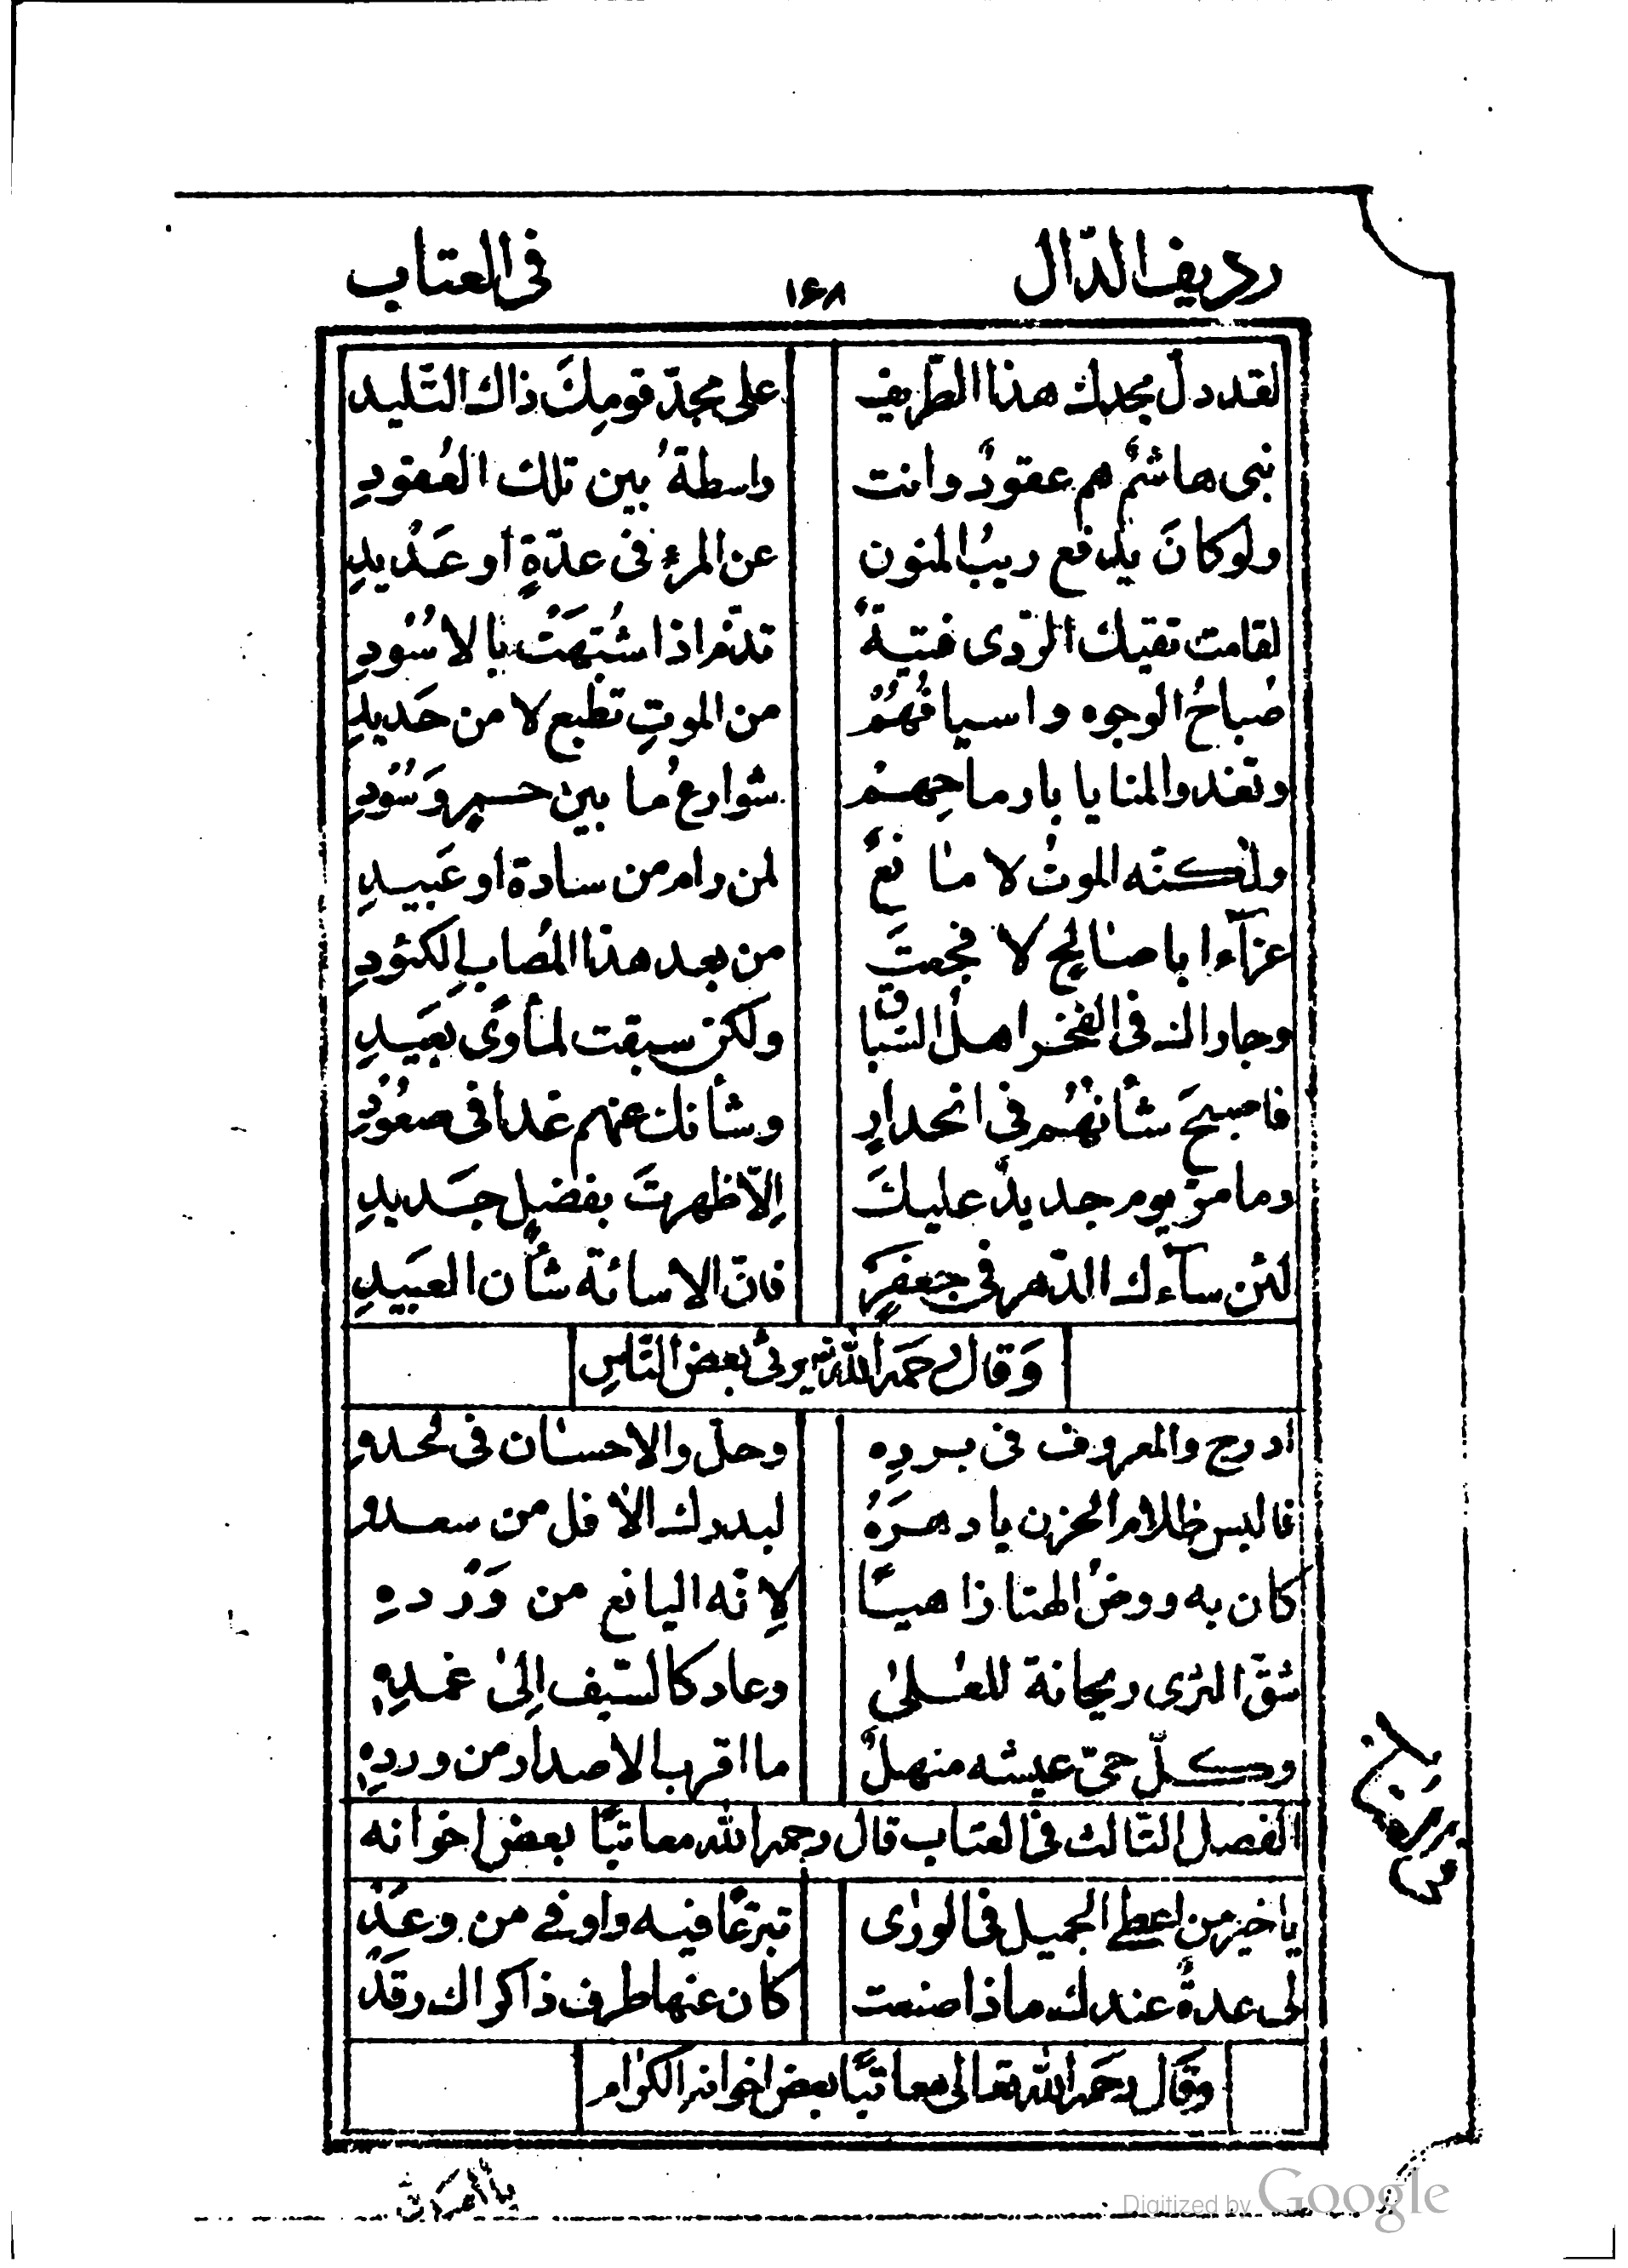 رديف الدّال ١٤٨ فى العتاب
لقد دلّ مجدك هذا الطّريف على مجدّ قومِكَ ذاك التّليد
بنى هاشمٌ هم عقودٌ وانت واسطةُ بين تلك العُقودِ
ولو كانَ يدفع ريبُ المنون عن المرءِ فى عدّةٍ او عَديدِ
لقامت تقيك الرّدى فتيةٌ تذمّ اذا شُبّهَتْ بالاسُودِ
صُباحُ الوجوه واسيافُهُمْ من الموتِ تطبع لا من حَديدِ
وتغدو المنايا بارماحِهمْ شوارعُ ما بين حمرٍ وَسُودِ
ولكنّه الموتُ لا مانعٌ لمن رام من سادة او عَبيدِ
عزآءا ابا صالح لا فجعتَ من بعد هذا المُصابِ الكئودِ
وجاراك فى الفخر اهلُ السّباق ولكن سبقت لمأوًى بعَيدِ
فاصبحَ شأنهُم فى انحدارٍ وشأنك عنهم غدا فى صعُودِ
وما مرّ يوم جديدٌ عليكَ إلاّ ظهرتَ بفضلٍ جَديدِ
لئن سآءك الدّهر فى جعفرٍ فانّ الاسائة شأن العَبيدِ
وَقال رحمَه الله يرثى بعض النّاسِ
ادرج والمعروف فى بردِه وحلّ والاحسان فى لحدهِ
فالبس ظلام الحزن يا دهرَهُ لبدرك الأفل من سعدهِ
كان به روضُ الهنا زاهيًا لِانّه اليانع من وَرْدهِ
شقّ الثرى ريحانة للعُلىٰ وعاد كالسّيف إلىٰ غمدِهِ
وكلّ حىّ عيشه منهلٌ ما اقرب الاصدار من وردِهِ
الفصل الثّالث فى العتاب قال رحمه الله معاتبًا بعض اخوانه
يا خير من اعطى الجميل فى الورٰى تبرّعًا فيه واوفى من وعَدْ
لى عدةٌ عندك ماذا صنعت كان عنها طرف ذاكراك رقَدْ
وَقال رحمَه الله تعالى معاتبًا بعض اخوانه الكرام
Digitized by Google